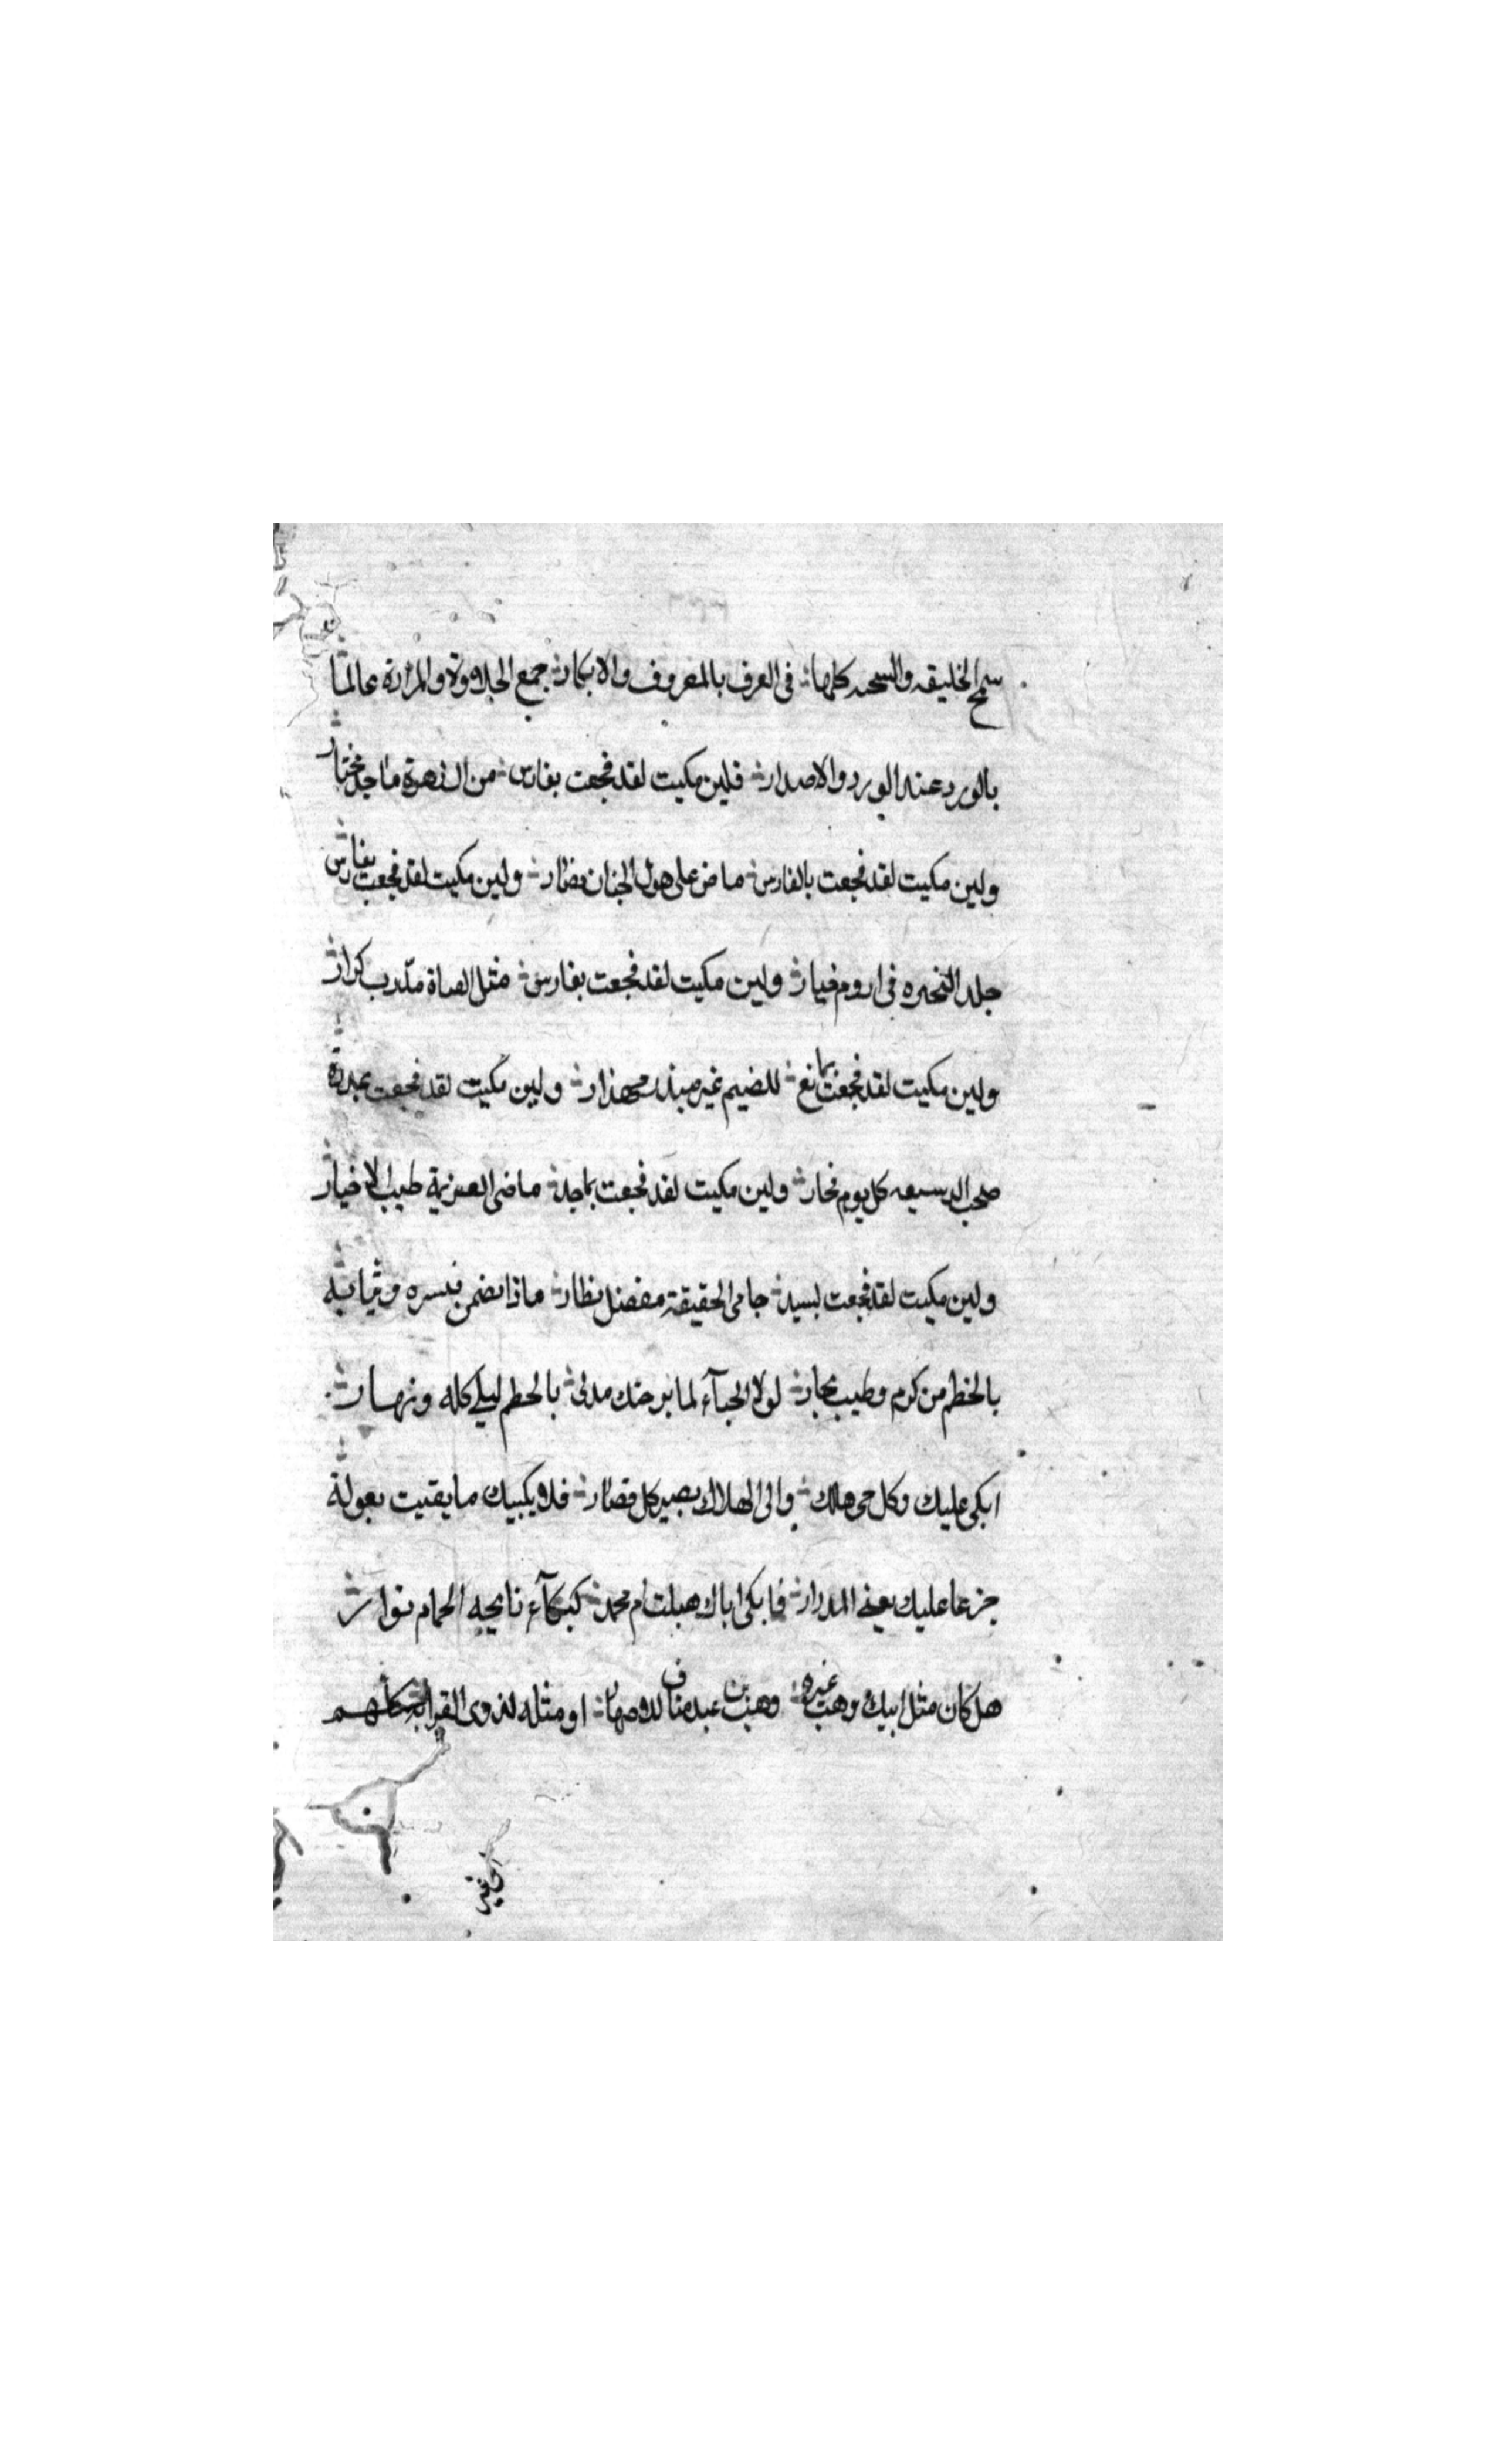 سمح الخليقه والسجيه كلها في العرف بالمعروف والابكار جمع الحلاوة والمرارة عالما
بالورد عند الورد والاصدار فلين بكيت لقد فجعت بفارس من الزهرة ماجد مختار
ولين بكيت لقد فجعت بالفارس ماض على هول الجنان مضار ولين بكيت لقد فجعت بفارس
جلد النحيزه في اروم خيار ولين بكيت لقد فجعت بفارس مثل القناة مدرب كرار
ولين بكيت لقد فجعت بمانع للضيم غير مبذر مهذار ولين بكيت لقد فجعت بمدرة
صلحب الدسيعه كل يوم فخار ولين بكيت لقد فجعت بماجد ماضى العزيمة طيب الاخيار
ولين بكيت لقد فجعت لسيد حامى الحقيقة مفضل نظار ماذا تضمن قبره وثيابه
بالخطم من كرم وطيب نجار لولا الحيآء لما برحتك مدتى بالحطم ليلي كله ونهار
ابكى عليك وكل حى هالك والى الهلاك يصير كل قصار فلا بكيك ما بقيت بعولة
جزعا عليك بعينى المدرار فابكى اباك هبلت ام محمد كبكآء نايحه الحمام نوار
هل كان مثل ابيك وهب غيره وهب بن عبد مناف للاصهار او مثله لذوى القرابة كلهم